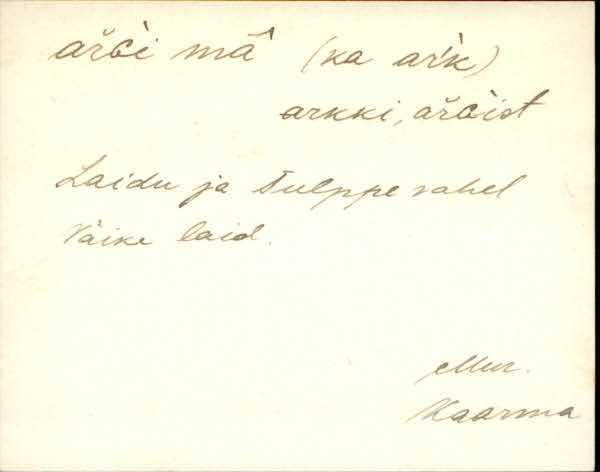 ařči mâ (ka ař̀k)
arkki, ařčist
Laidu ja Tulppe vahel
Väike laid.
Mur.
Kaarma